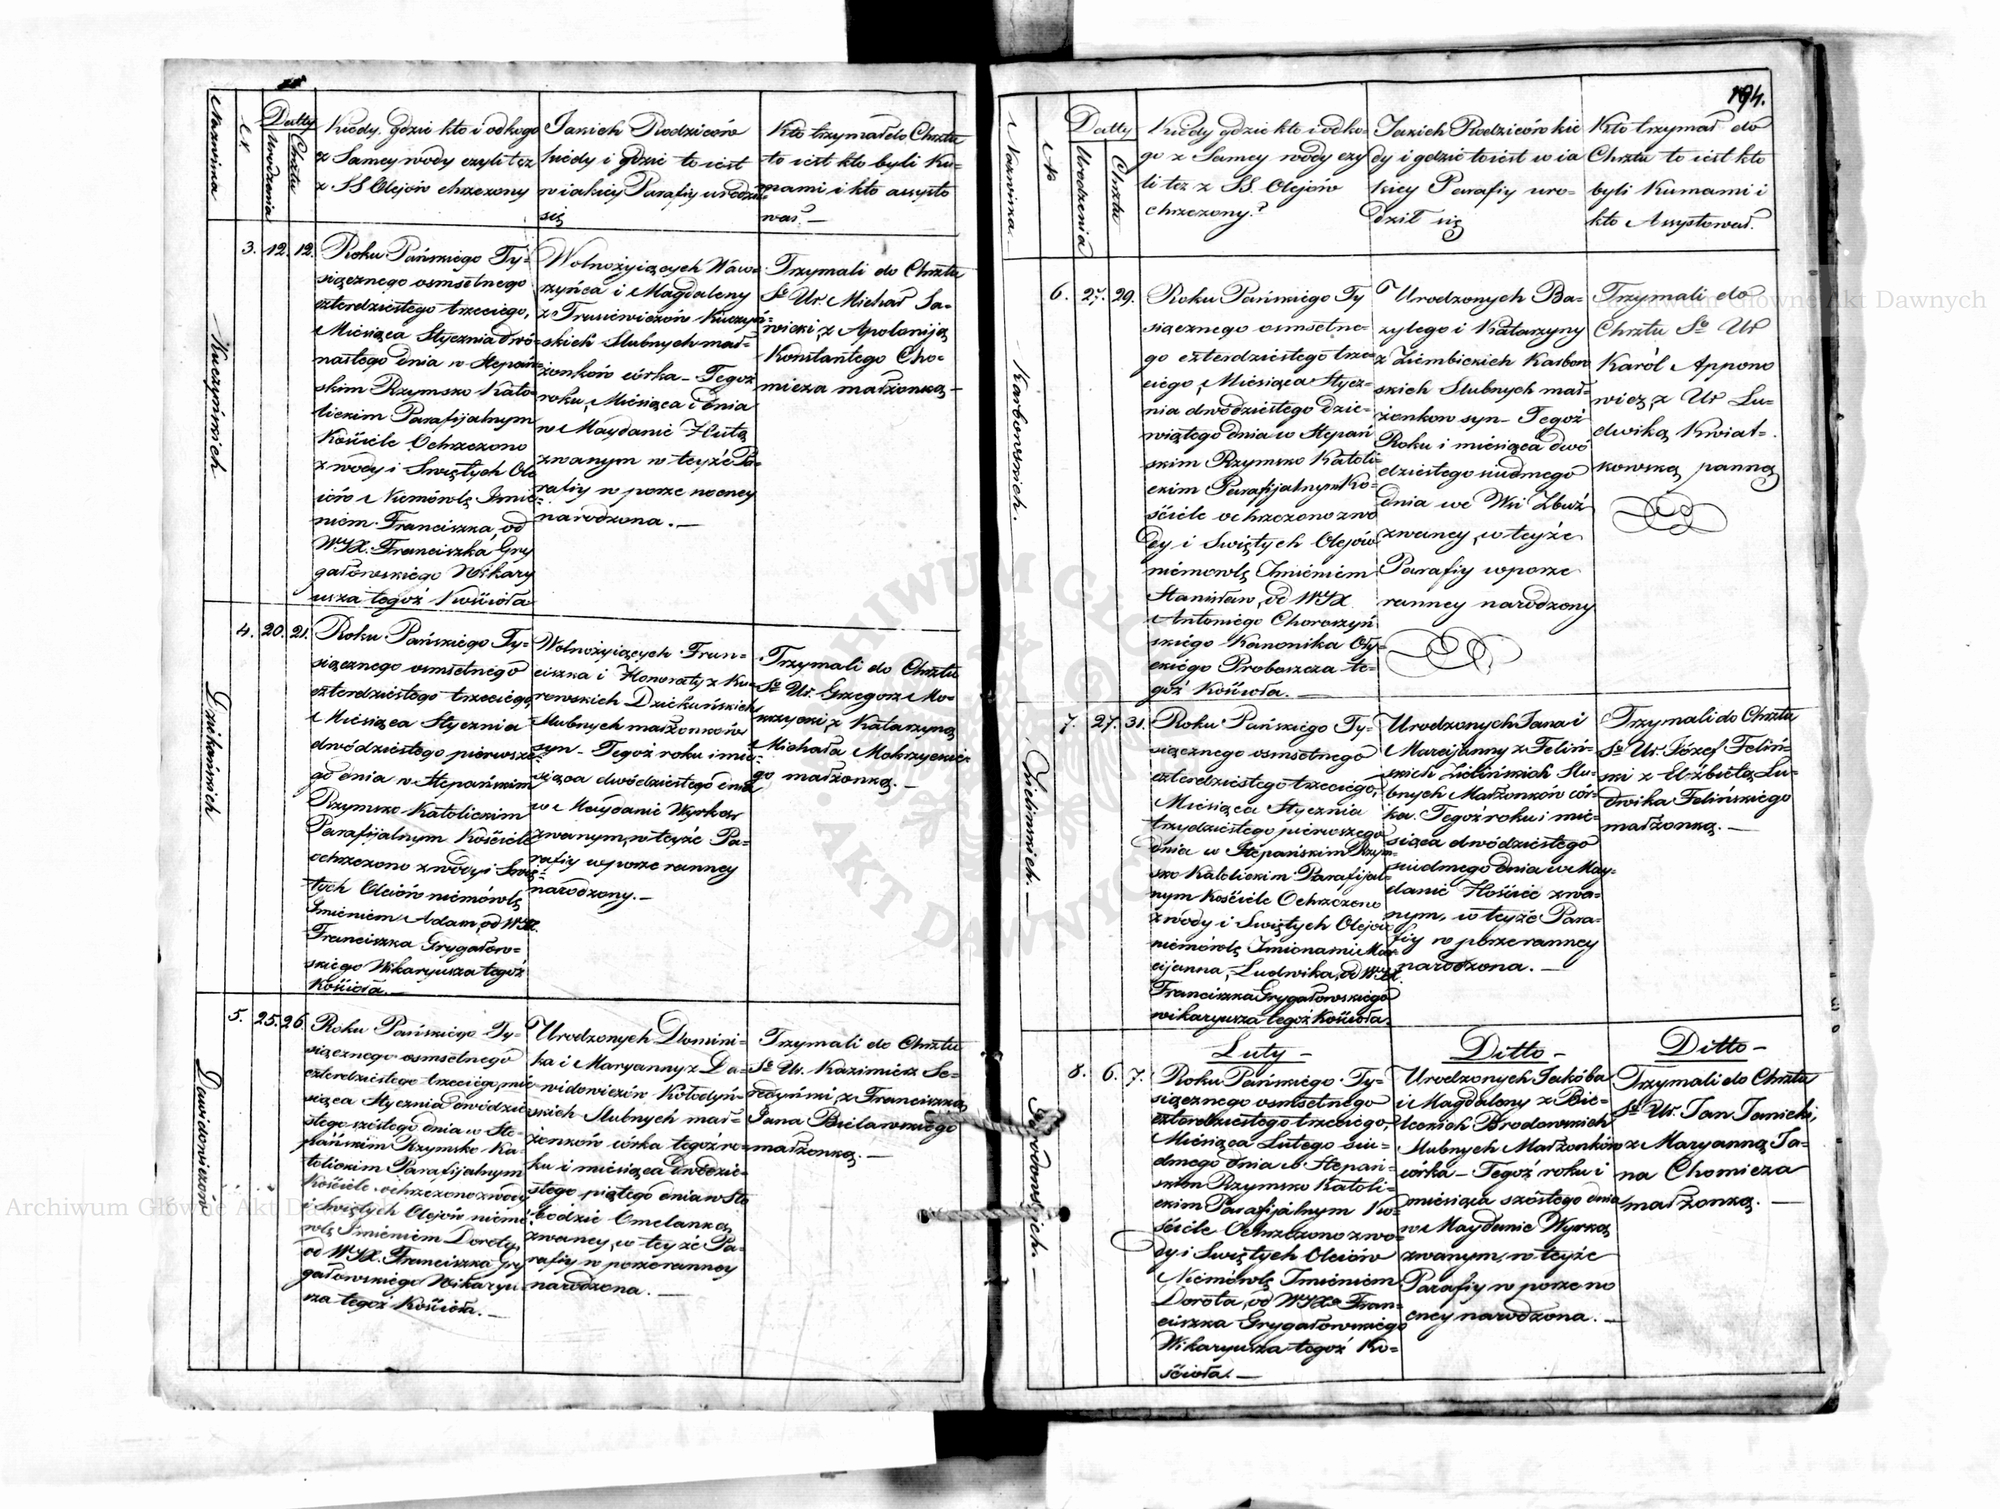 Nazwiska
Nr
Datty
Urodzenia
Chrztu
Kiedy, gdzie kto i od kogo
z Samey wody czyli też
z SS Olejów chrzczony
Jakich Rodziców
kiedy i gdzie to iest
w iakiey Parafiy urodził
się
Kto trzymał do Chrztu
to iest kto byli Ku-
mami i kto assysto
wał. —
Kuczyńskich
3. 12. 12.
Roku Pańskiego Ty-
siącznego osmsetnego
czterdziestego trzeciego,
Miesiąca Stycznia dwó-
nastego dnia w Stepań-
skim Rzymsko Kato-
lickim Parafijalnym
Kościele Ochrzczono
z wody i Swiętych Ole
iów Niemówlę Imie-
niem Franciszka, od
WJX. Franciszka Gry
gałowskiego Wikary
usza tegoż Kościoła
Wolnożyiących Waw-
rzyńca i Magdaleny
z Trusiewiczów Kuczyń-
skich Slubnych mał-
żonków córka — Tegoż
roku, Miesiąca i dnia
w Maydanie Hutą
zwanym w teyże Pa-
rafiy w porze nocney
narodzona. —
Trzymali do Chrztu
So Ur. Michał Sa-
wicki, z Apolonią
Konstantego Cho-
micza małżonką —
Dziekońskich
4. 20. 21.
Roku Pańskiego Ty-
siącznego osmsetnego
czterdziestego trzeciego,
Miesiąca Stycznia
dwódziestego pierwsze-
go dnia w Stepańskim
Rzymsko Katolickim
Parafijalnym Kościele
ochrzczono z wody i Swię-
tych Oleiów niemówlę
Imieniem Adam, od WJX.
Franciszka Grygałow-
skiego Wikaryusza tegoż
Kościoła. —
Wolnożyiących Fran-
ciszka i Honoraty z Ku-
rowskich Dziekońskich
Slubnych małżonków
syn — Tegoż roku i mie-
siąca dwódziestego dnia
w Maydanie Wyrką
zwanym, w teyże Pa-
rafiy w porze ranney
narodzony. —
Trzymali do Chrztu
So Ur. Grzegorz Mo-
krzycki, z Katarzyną
Michała Mokrzyckie-
go małżonką. —
Dawidowiczów
5. 25. 26.
Roku Pańskiego Ty-
siącznego osmsetnego
czterdziestego trzeciego, mie
siąca Stycznia dwódzie
stego szóstego dnia w Ste-
pańskim Rzymsko Ka-
tolickim Parafijalnym
Kościele ochrzczono z wody
i Swiętych Olejów niemó
wlę Imieniem Dorota,
od WJX. Franciszka Gry
gałowskiego Wikaryu
sza tegoż Kościoła. —
Urodzonych Domini-
ka i Maryanny z Da-
widowiczów Kołodyń-
skich Slubnych mał-
żonków córka tegoż ro-
ku i miesiąca dwódzie-
stego piątego dnia w Sło
bodzie Omelanką
zwaney, w teyże Pa-
rafiy w porze ranney
narodzona. —
Trzymali do Chrztu
So Ur. Kazimierz Se-
redyński, z Franciszką
Jana Bielawskiego
małżonką. —
194.
Nazwiska
Nr
Datty
Urodzenia
Chrztu
Kiedy gdzie kto i od ko-
go z Samey wody czy
li też z SS. Olejów
chrzczony?
Jakich Rodziców kie
dy i gdzie to iest w ia
kiey Parafiy uro-
dził się
Kto trzymał do
Chrztu to iest kto
byli Kumami i
kto Assystował.
Karbowskich.
6. 27. 29.
Roku Pańskiego Ty
siącznego osmsetne-
go czterdziestego trze
ciego, Miesiąca Stycz-
nia dwódziestego dzie-
wiątego dnia w Stepań
skim Rzymsko Katoli-
ckim Parafijalnym Ko-
ściele ochrzczono z wo
dy i Swiętych Olejów
niemowlę Imieniem
Stanisław, od WJX.
Antoniego Choroszyń
skiego Kanonika Oły-
ckiego Proboszcza te-
goż Kościoła. —
Urodzonych Ba-
zylego i Katarzyny
z Ziembickich Karbow
skich Slubnych mał-
żonkow syn — Tegoż
Roku i miesiąca dwó
dziestego siódmego
dnia we Wsi Zbuż
zwaney, w teyże
Parafiy w porze
ranney narodzony
Trzymali do
Chrztu So Ur
Karól Appono
wicz, z Ur Lu-
dwiką Kwiat-
kowską panną
Zielinskich. —
7. 27. 31.
Roku Pańskiego Ty-
siącznego osmsetnego
czterdziestego trzeciego,
Miesiąca Stycznia
trzydziestego pierwszego
dnia w Stepańskim Rzym-
sko Katolickim Parafijal-
nym Kościele Ochrzczono
z wody i Swiętych Olejów
niemówlę Imionami Mar-
cijanna, Ludwika, od WJX.
Franciszka Grygałowskiego
wikaryusza tegoż Kościoła.
Urodzonych Jana i
Marcijanny z Feliń-
skich Zielińskich Slu-
bnych Małżonków cór-
ka. Tegoż roku i mie-
siąca dwódziestego
siudmego dnia w May-
danie Hościec zwa-
nym, w teyże Para-
fiy w porze ranney
narodzona. —
Trzymali do Chrztu
So Ur. Józef Feliń-
ski z Elżbietą Lu-
dwika Felińskiego
małżonką. —
Brodowskich. —
Luty —
8. 6. 7.
Roku Pańskiego Ty-
siącznego osmsetnego
czterdziestego trzeciego,
Miesiąca Lutego siu-
dmego dnia w Stepań-
skim Rzymsko Katoli-
ckim Parafijalnym Ko-
ściele Ochrzczono z wo-
dy i Swiętych Oleiów
Niemówlę Imieniem
Dorota, od WJXa Fran-
ciszka Grygałowskiego
Wikaryusza tegoż Ko-
ścioła. —
Ditto —
Urodzonych Jakóba
i Magdaleny z Bie-
leckich Brodowskich
Slubnych Małżonków
córka — Tegoż roku i
miesiąca szóstego dnia
w Maydanie Wyrką
zwanym, w teyże
Parafiy w porze no
cney narodzona. —
Ditto —
Trzymali do Chrztu
So Ur. Jan Janicki,
z Maryanną Ja-
na Chomicza
małżonką. —
Archiwum Główne Akt Dawnych
Archiwum Główne Akt Dawnych
ARCHIWUM GŁÓWNE AKT DAWNYCH